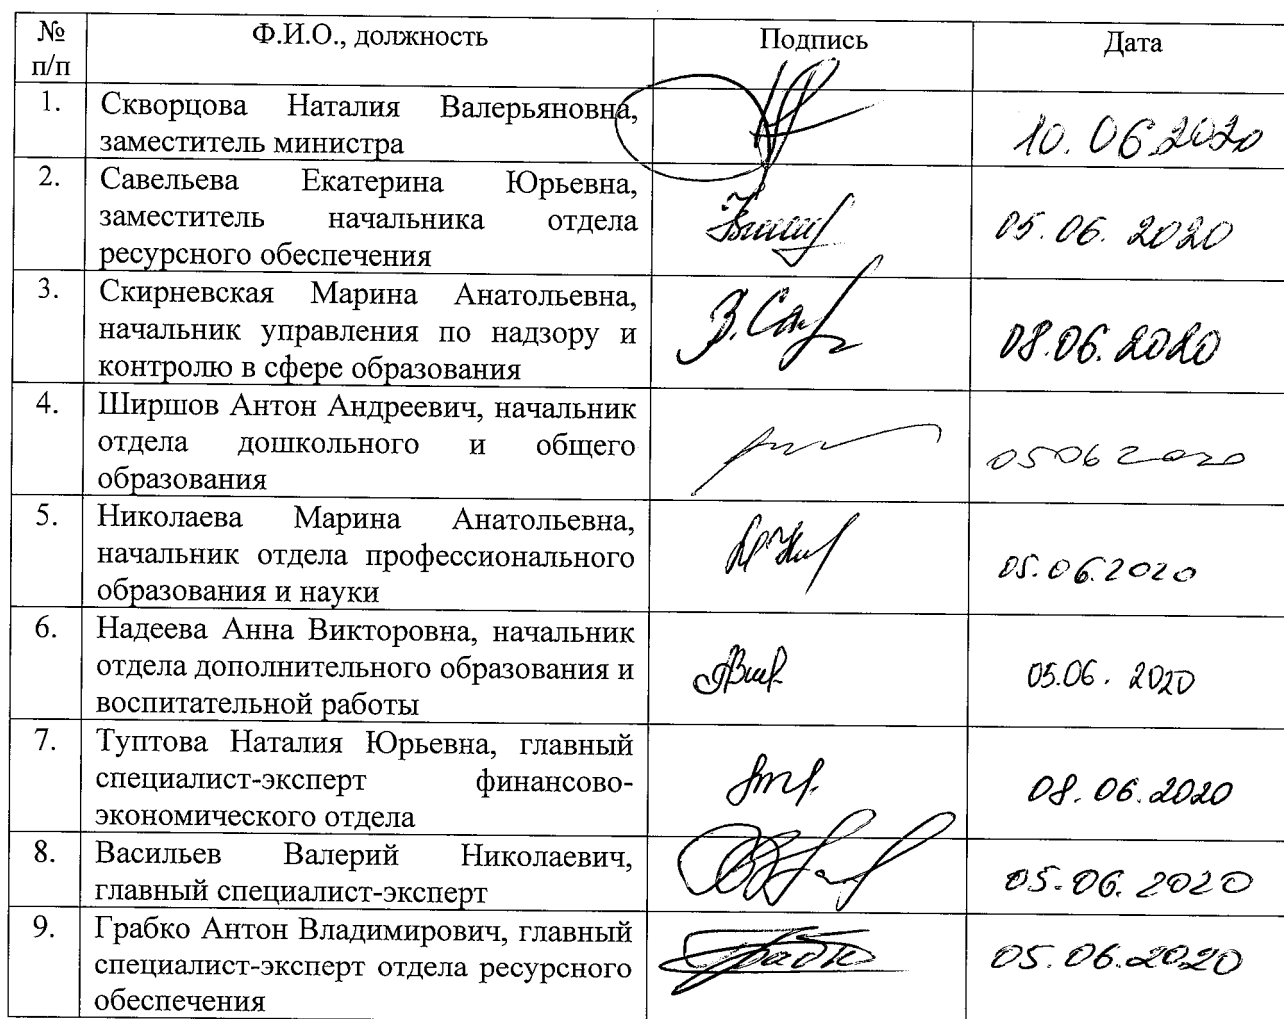 № п/п Ф.И.О., должность Подпись Дата
1. Скворцова Наталия Валерьяновна,
заместитель министра 10.06.2020
2. Савельева Екатерина Юрьевна,
заместитель начальника отдела 05.06.2020
ресурсного обеспечения
3. Скирневская Марина Анатольевна,
начальник управления по надзору и 08.06.2020
контролю в сфере образования
4. Ширшов Антон Андреевич, начальник
отдела дошкольного и общего 05062020
образования
5. Николаева Марина Анатольевна,
начальник отдела профессионального 05.06.2020
образования и науки
6. Надеева Анна Викторовна, начальник
отдела дополнительного образования и 05.06.2020
воспитательной работы
7. Туптова Наталия Юрьевна, главный
специалист-эксперт финансово- 08.06.2020
экономического отдела
8. Васильев Валерий Николаевич,
главный специалист-эксперт 05.06.2020
9. Грабко Антон Владимирович, главный
специалист-эксперт отдела ресурсного Грабко 05.06.2020
обеспечения